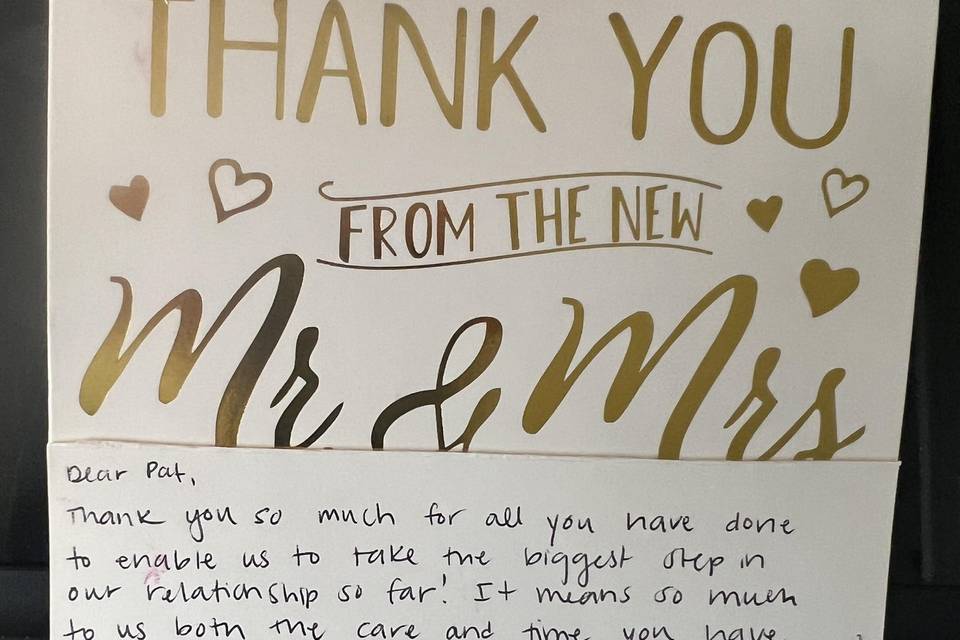 THANK YOU
FROM THE NEW
Mr & Mrs
Dear Pat,
Thank you so much for all you have done
to enable us to take the biggest step in
our relationship so far! It means so much
to us both the care and time you have